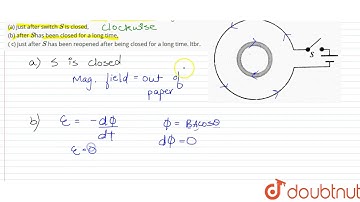 (a) just after switch S is closed, clockwise
(b) after S has been closed for a long time,
(c) just after S has been reopened after being closed for a long time. ltbr.
a) S is closed
Mag. field = out of paper
S
b) ε = -dφ/dt φ = BAcosθ
dφ = 0
ε = 0
doubtnut